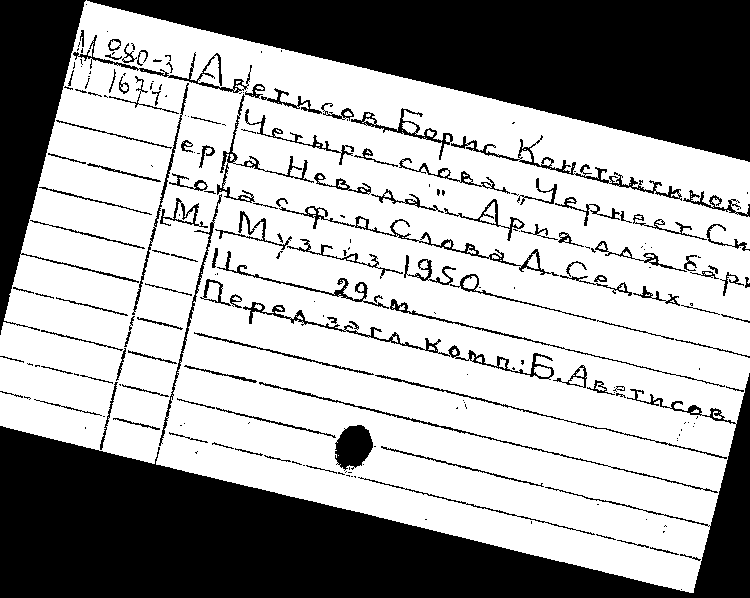 М 280-3
П 1674
Аветисов, Борис Константинов
Четыре слова. „Чернеет Си
ерра Невада". Ария для бари
тона с ф.-п. Слова Д. Седых.
М., Музгиз, 1950.
11с. 29см.
Перед загл. комп.: Б. Аветисов